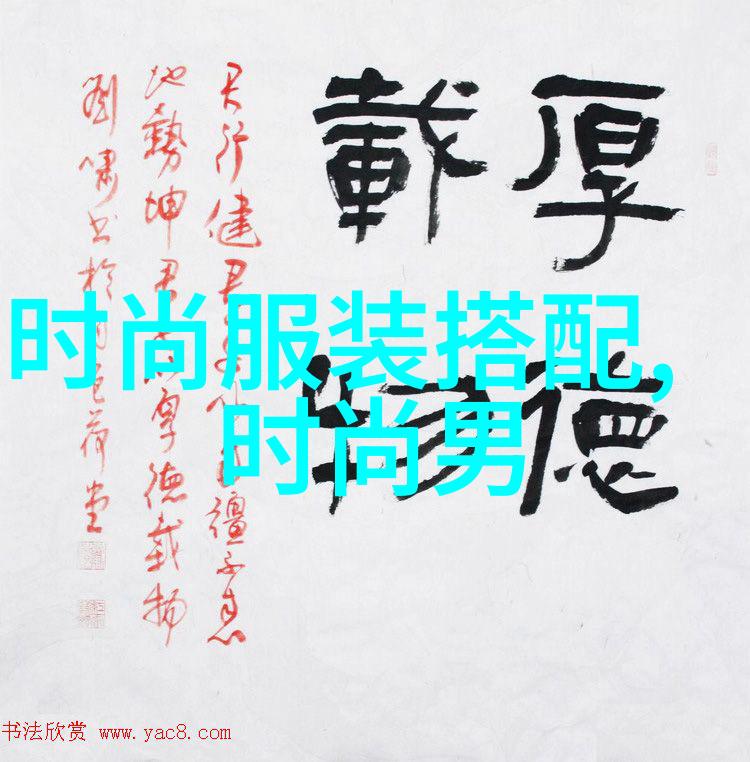 厚德
載物
天行健君子以自彊不息
地勢坤君子以厚德載物
劉嘯书於色荷堂
时尚服装搭配,
时尚男
书法欣赏 www.yac8.com